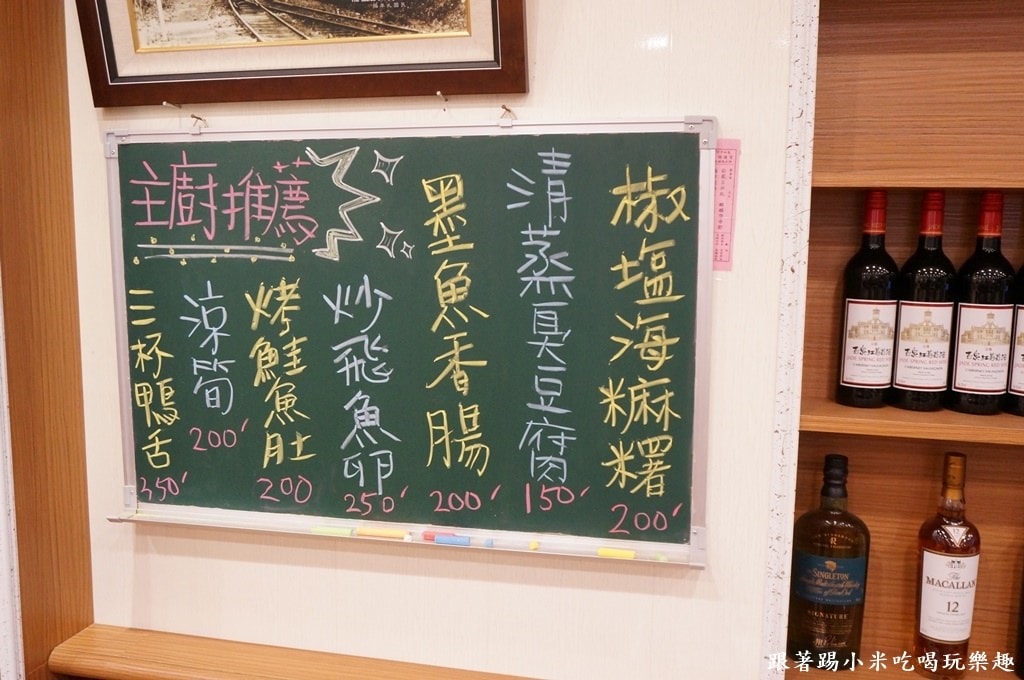 主廚推薦
椒塩海麻糬
200'
清蒸臭豆腐
150'
墨魚香腸
200'
炒飛魚卵
250'
烤鮭魚肚
200
涼筍
200'
三杯鴨舌
350'
JADE SPRING RED WINE
CABERNET SAUVIGNON
JADE SPRING RED WINE
CABERNET SAUVIGNON
SINGLETON
SIGNATURE
The
MACALLAN
12
跟著踢小米吃喝玩樂趣